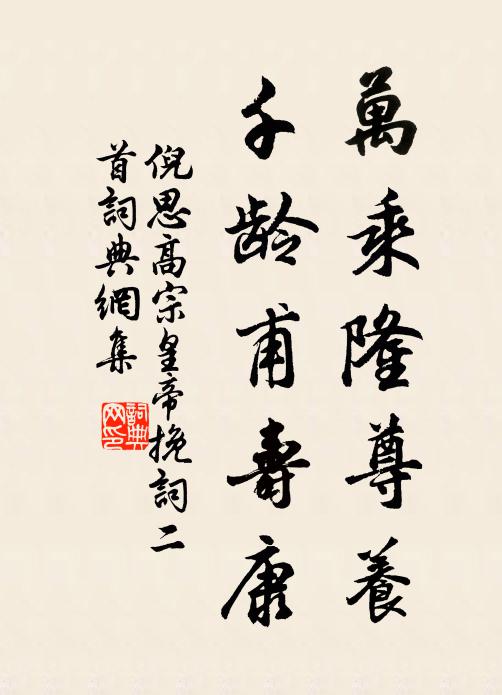 萬乘隆尊養
千龄甫壽康
倪思高宗皇帝挽詞二
首詞典網集
詞典
网印